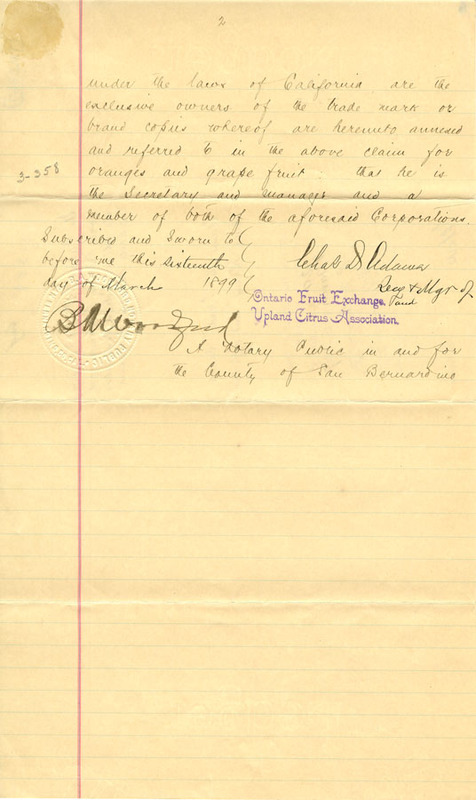 2
under the laws of California are the
exclusive owners of the trade mark or
brand copies whereof are hereunto annexed
and referred to in the above claim for
3-358
oranges and grape fruit that he is
the Secretary and manager and a
member of both of the aforesaid Corporations.
Subscribed and Sworn to
before me this sixteenth
day of March 1899
Chas D Adams
Secy & Mgr of
Ontario Fruit Exchange, and
Upland Citrus Association.
A Notary Public in and for
the County of San Bernardino